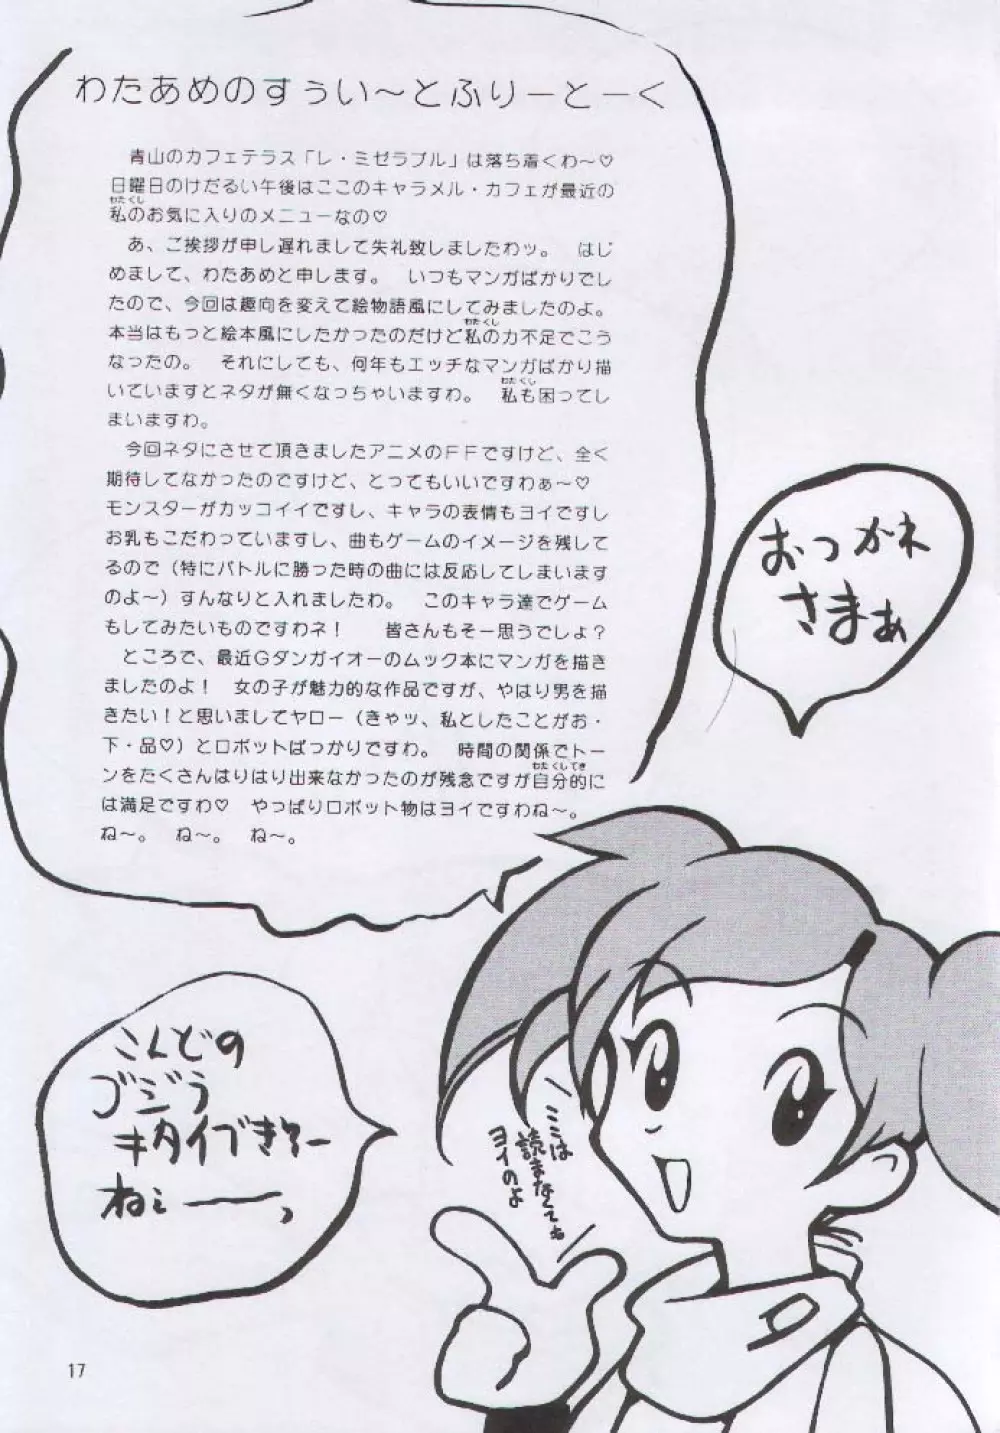 わたあめのすぅい～とふりーとーく
青山のカフェテラス「レ・ミゼラブル」は落ち着くわ～♡
日曜日のけだるい午後はここのキャラメル・カフェが最近の
わたくし
私のお気に入りのメニューなの♡
あ、ご挨拶が申し遅れまして失礼致しましたわッ。　はじ
めまして、わたあめと申します。　いつもマンガばかりでし
たので、今回は趣向を変えて絵物語風にしてみましたのよ。
わたくし
本当はもっと絵本風にしたかったのだけど私の力不足でこう
なったの。　それにしても、何年もエッチなマンガばかり描
わたくし
いていますとネタが無くなっちゃいますわ。　私も困ってし
まいますわ。
今回ネタにさせて頂きましたアニメのＦＦですけど、全く
期待してなかったのですけど、とってもいいですわぁ～♡
モンスターがカッコイイですし、キャラの表情もヨイですし
お乳もこだわっていますし、曲もゲームのイメージを残して
るので（特にバトルに勝った時の曲には反応してしまいます
のよ～）すんなりと入れましたわ。　このキャラ達でゲーム
もしてみたいものですわネ！　皆さんもそー思うでしょ？
ところで、最近Ｇダンガイオーのムック本にマンガを描き
ましたのよ！　女の子が魅力的な作品ですが、やはり男を描
きたい！と思いましてヤロー（きゃッ、私としたことがお・
下・品♡）とロボットばっかりですわ。　時間の関係でトー
わたくしてき
ンをたくさんはりはり出来なかったのが残念ですが自分的に
は満足ですわ♡　やっぱりロボット物はヨイですわね～。
ね～。　ね～。　ね～。
おつかれ
さまぁ
こんどの
ゴジラ
キタイブきそー
ねぇーーっ
ミミは
読まなくても
ヨイのよ
17